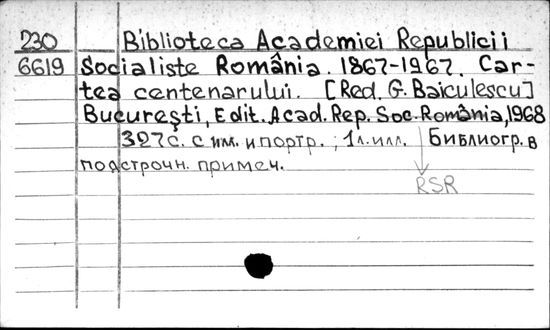 230 Biblioteca Academiei Republicii
6619 Socialiste România. 1867-1967. Car-
tea centenarului. [Red. G. Baiculescu]
Bucureşti, Edit. Acad. Rep. Soc. România, 1968
327с. с илл. и портр.; 1л. илл. Библиогр. в
подстрочн. примеч.
RSR